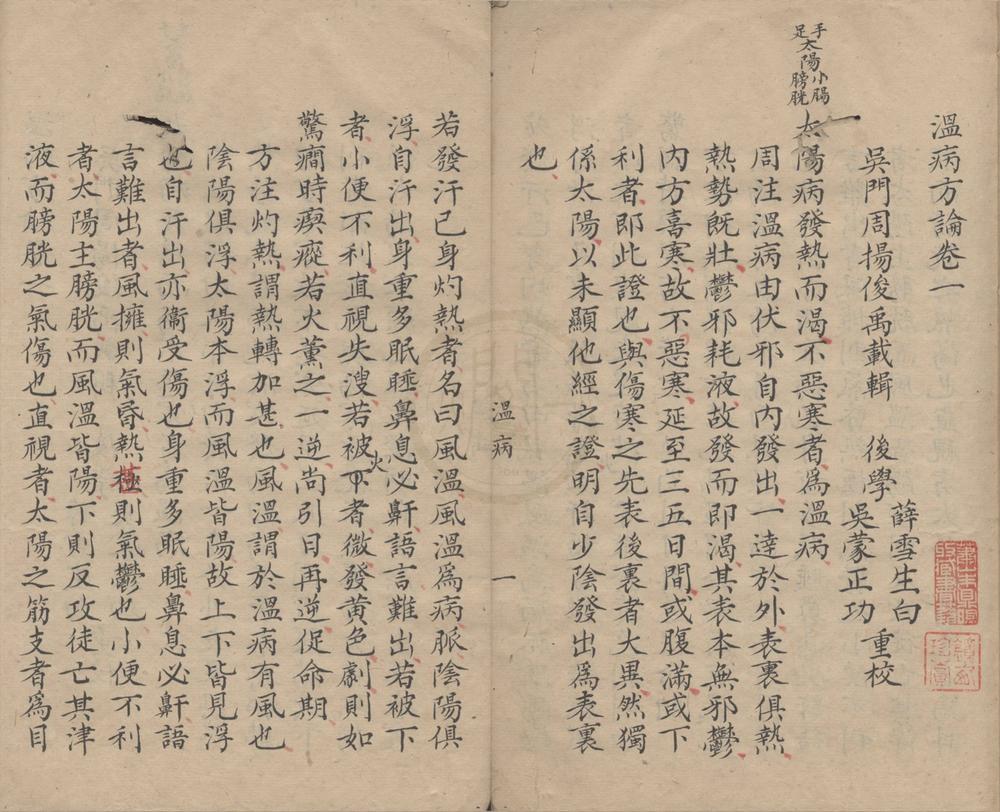 溫病方論卷一
吳門周揚俊禹載輯　後學
薛雪生白
吳蒙正功
重校
手太陽小腸
足太陽膀胱
太陽病發熱而渴不惡寒者為溫病
周注溫病由伏邪自內發出一逹於外表裏俱熱
熱勢既壯鬱邪耗液故發而即渴其表本無邪鬱
內方喜寒故不惡寒延至三五日間或腹滿或下
利者即此證也與傷寒之先表後裏者大異然獨
係太陽以未顯他經之證明自少陰發出為表裏
也
溫病
一
若發汗已身灼熱者名曰風溫風溫為病脈陰陽俱
浮自汗出身重多眠睡鼻息必鼾語言難出若被下
者小便不利直視失溲若被火者微發黃色劇則如
驚癇時瘈瘲若火薰之一逆尚引日再逆促命期
方注灼熱謂熱轉加甚也風溫謂於溫病有風也
陰陽俱浮太陽本浮而風溫皆陽故上下皆見浮
也自汗出亦衞受傷也身重多眠睡鼻息必鼾語
言難出者風擁則氣昏熱極則氣鬱也小便不利
者太陽主膀胱而風溫皆陽下則反攻徒亡其津
液而膀胱之氣傷也直視者太陽之筋支者為目